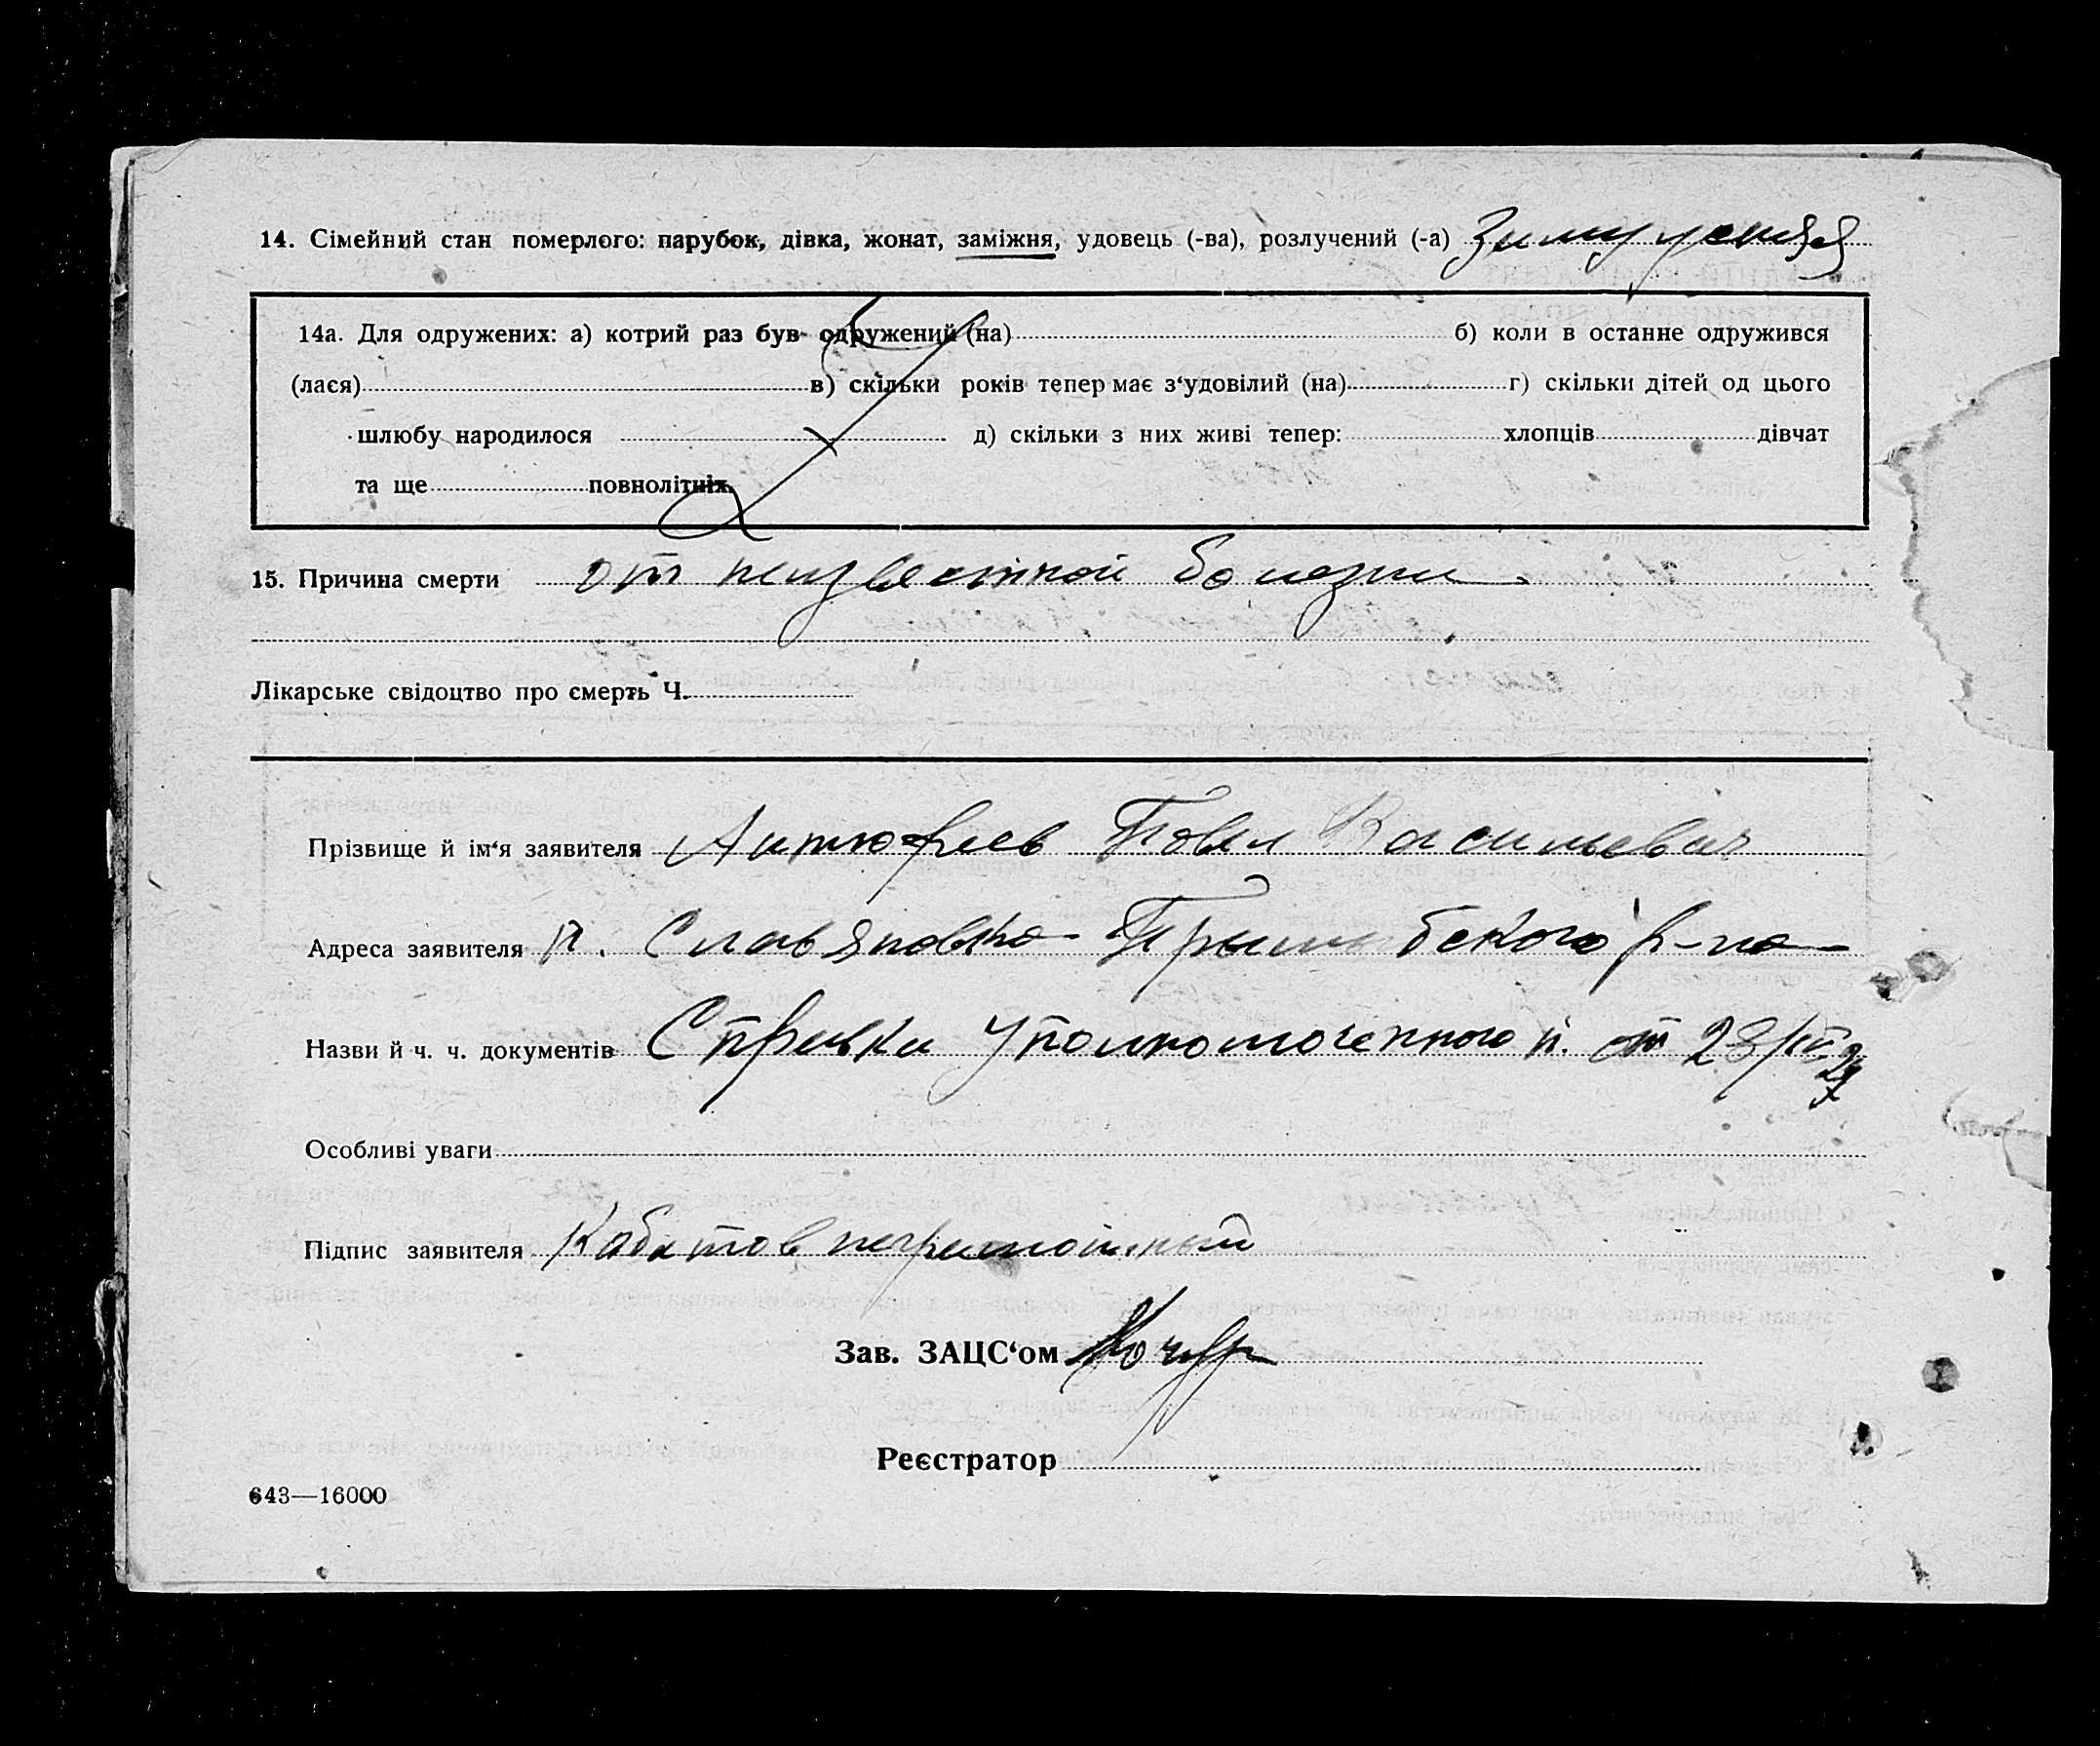 14. Сімейний стан померлого: парубок, дівка, жонат, заміжня, удовець (-ва), розлучений (-а)
14а. Для одружених: а) котрий раз був одружений (на) б) коли в останнє одружився
(лася) в) скільки років тепер має з'удовілий (на) г) скільки дітей од цього
шлюбу народилося д) скільки з них живі тепер: хлопців дівчат
та ще повнолітніх.
15. Причина смерти от неизвестной болезни
Лікарське свідоцтво про смерть Ч.
Прізвище й ім'я заявителя Антюфеев Павел Васильевич
Адреса заявителя п. Славяновка р-на
Назви й ч. ч. документів Справка Уполномоченного п. от 28
Особливі уваги
Підпис заявителя неграмотный
Зав. ЗАЦС'ом
Реєстратор
643—16000